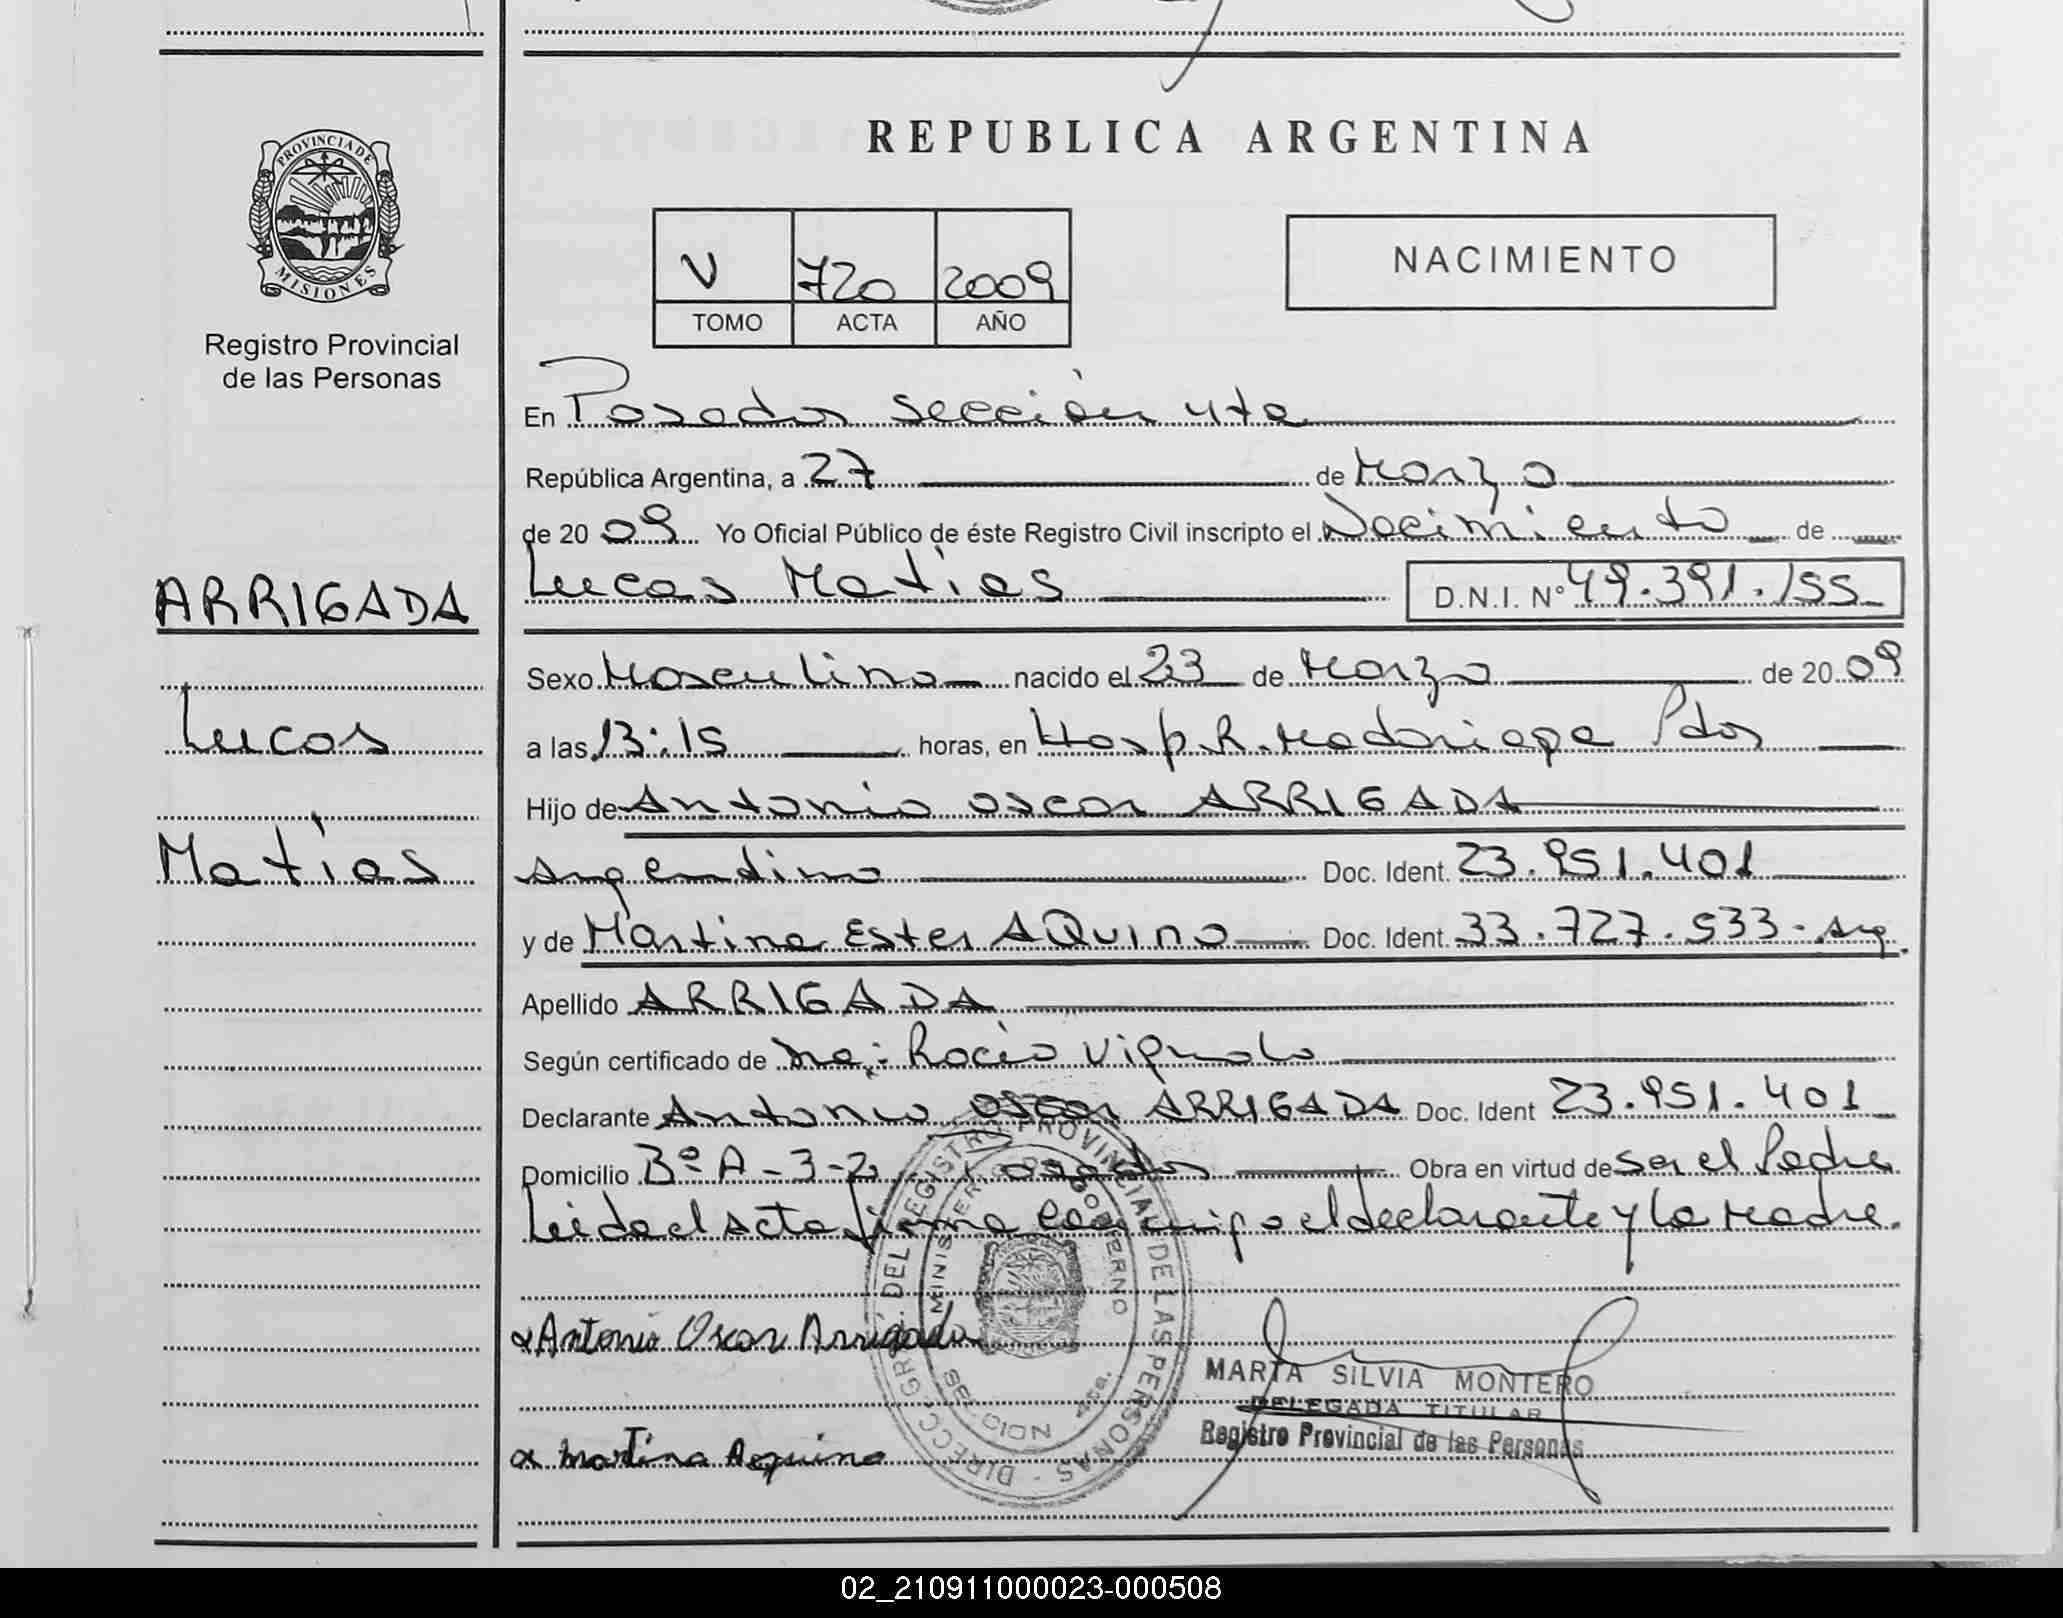 PROVINCIA DE
MISIONES
Registro Provincial
de las Personas
ARRIGADA
Lucas
Matías
REPUBLICA ARGENTINA
V 720 2009
TOMO ACTA AÑO
NACIMIENTO
En Posadas Sección 4ta
República Argentina, a 27 de Marzo
de 20 09 Yo Oficial Público de éste Registro Civil inscripto el Nacimiento de
Lucas Matías D.N.I. N° 49.391.155
Sexo Masculino nacido el 23 de Marzo de 20 09
a las 13:15 horas, en Hosp. R. Madariaga Pdas
Hijo de Antonio Oscar ARRIGADA
Argentino Doc. Ident. 23.951.401
y de Martina Ester AQUINO Doc. Ident. 33.727.533 - Arg.
Apellido ARRIGADA
Según certificado de Dra.: Rocío Vignolo
Declarante Antonio Oscar ARRIGADA Doc. Ident 23.951.401
Domicilio Bº A-3-2 Posadas Obra en virtud de ser el Padre
Leida el Acta firma conmigo el declarante y la Madre.
Antonio Oscar Arrigada
Martina Aquino
DIRECC. GRAL. DEL REGISTRO PROVINCIAL DE LAS PERSONAS
MINISTERIO DE GOBIERNO
4ta.
MARTA SILVIA MONTERO
DELEGADA TITULAR
Registro Provincial de las Personas
02_210911000023-000508